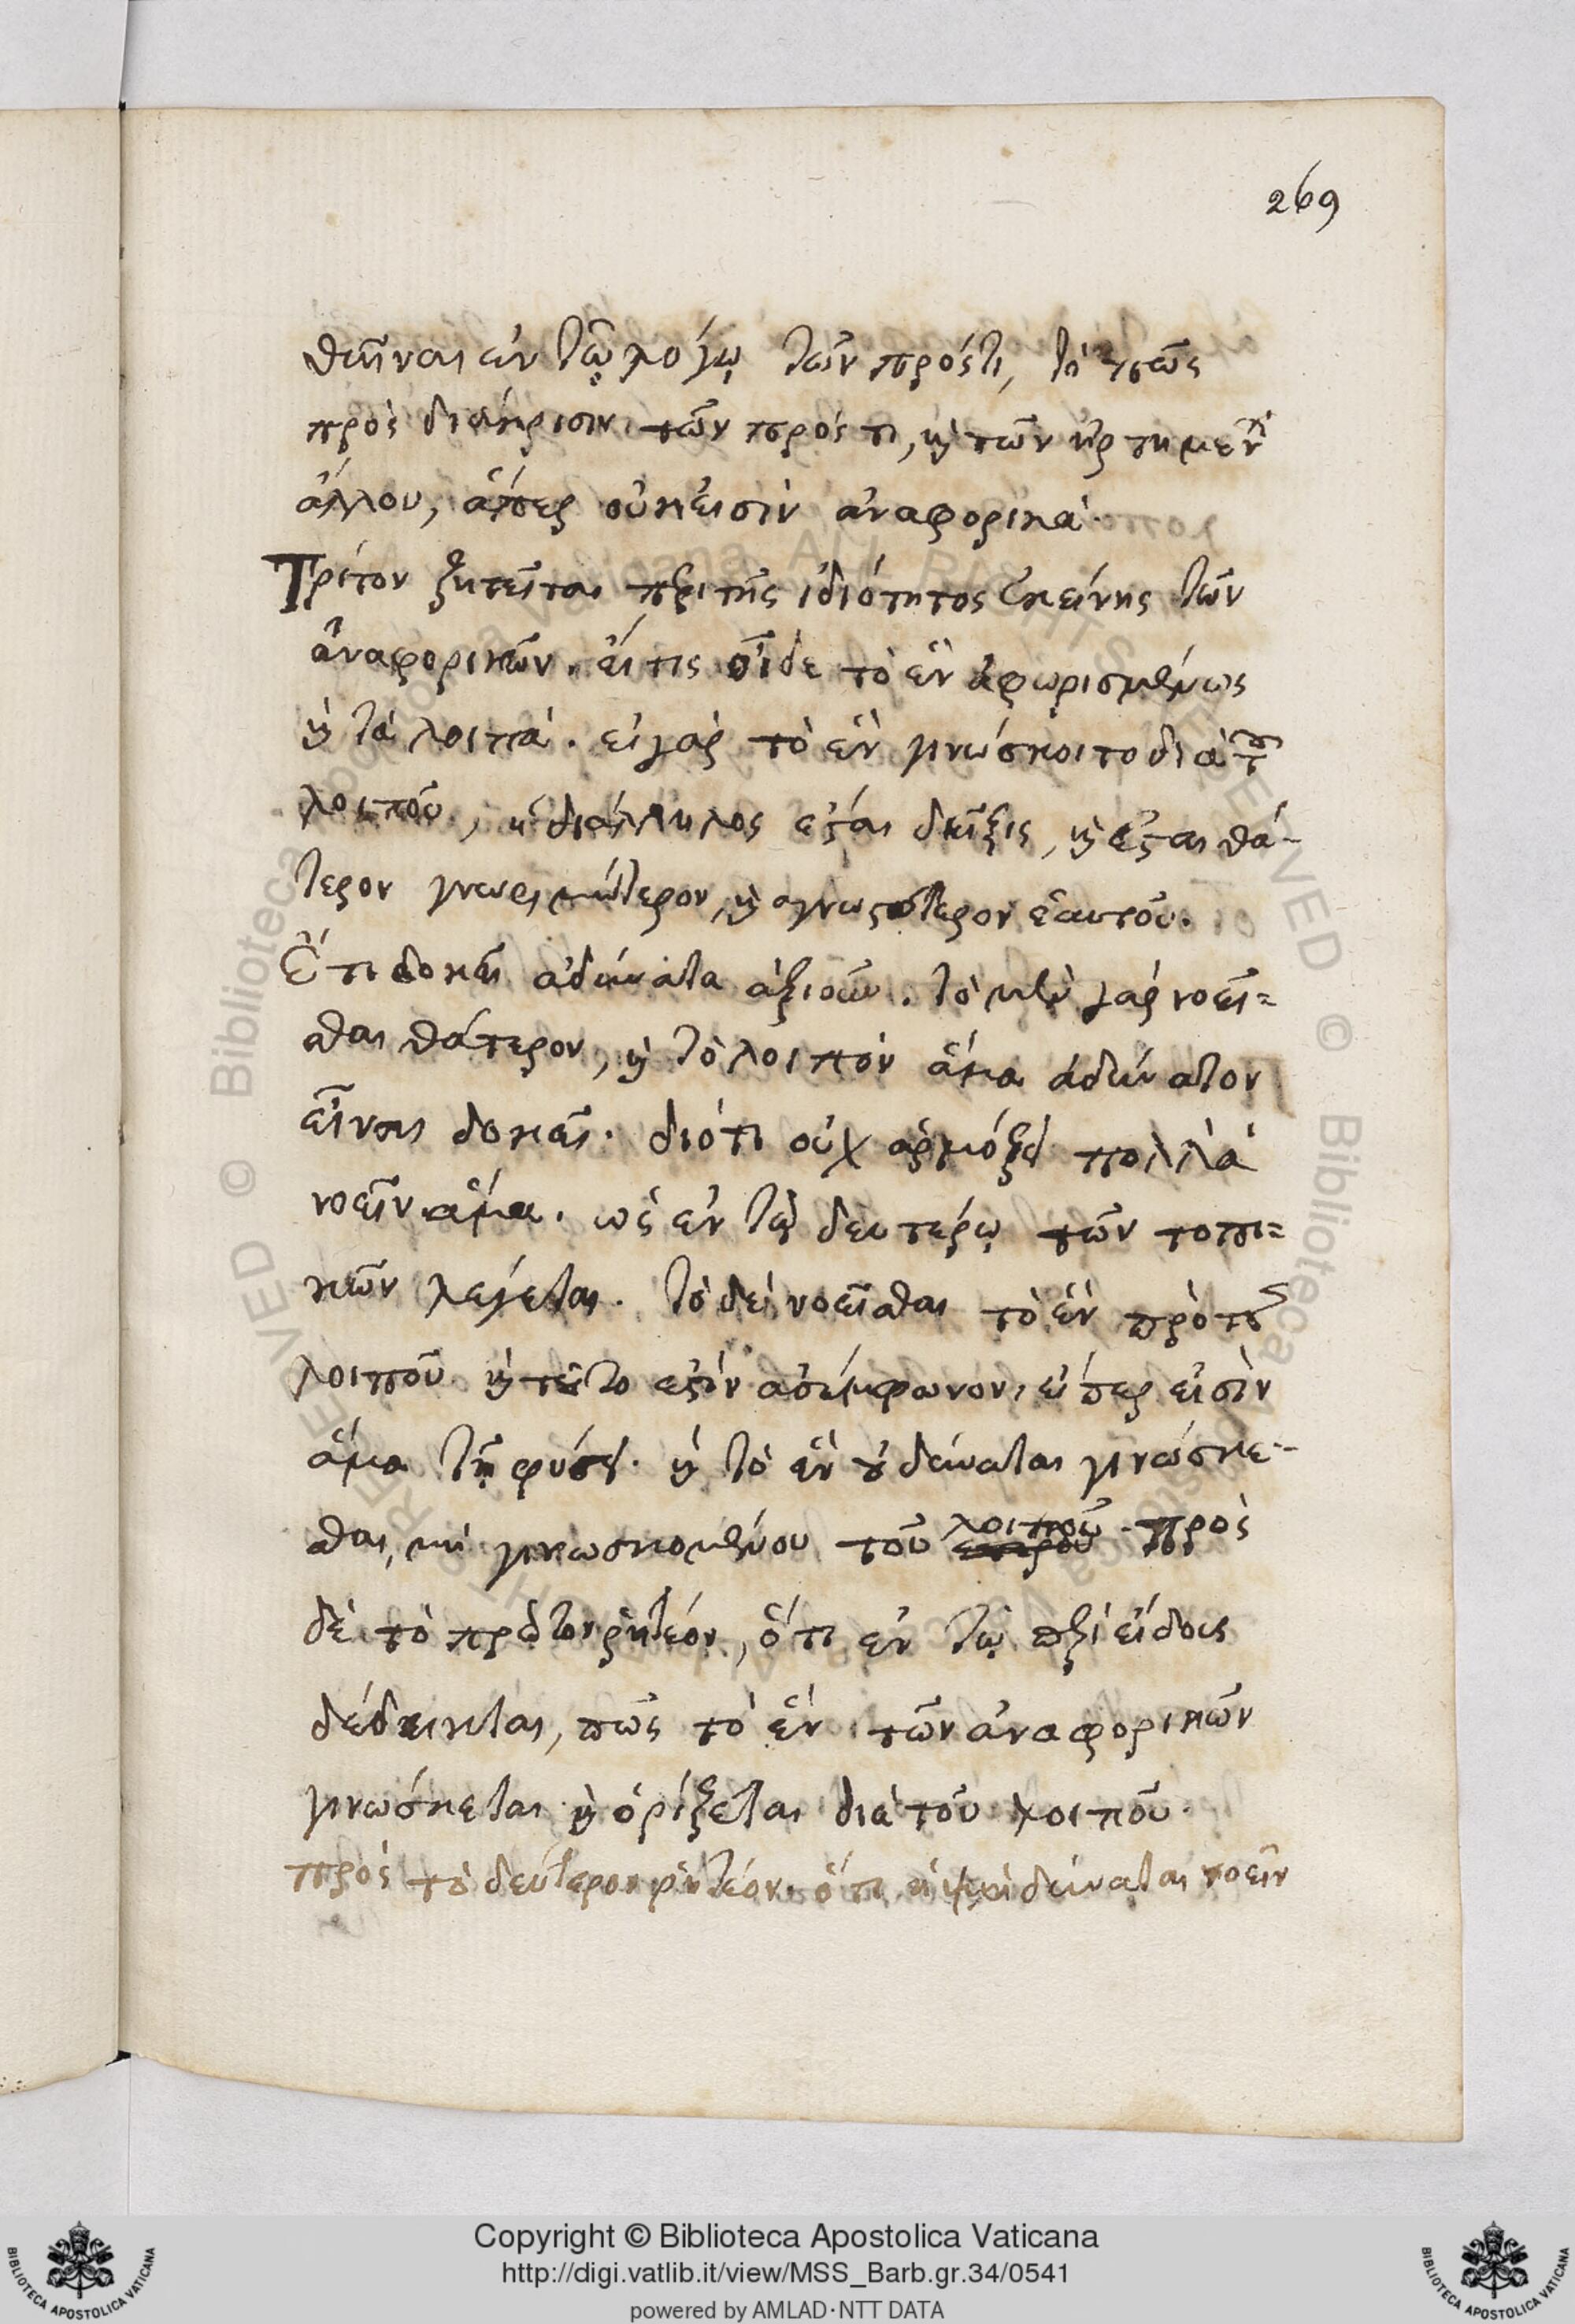 269
θεῖναι ἐν τῷ λόγῳ τῶν πρόστι,
πρὸς διάκρισιν τῶν πρός τι, καὶ τῶν
ἄλλου, ἅπερ οὐκ εἰσὶν ἀναφορικά.
Τρίτον ζητεῖται περὶ τῆς ἰδιότητος ἐκείνης τῶν
ἀναφορικῶν. εἴ τις οἶδε τὸ ἓν ἀφωρισμένως
καὶ τὰ λοιπά. εἰ γὰρ τὸ ἓν γινώσκοιτο διὰ τοῦ
λοιποῦ, ἡ διάλληλος ἔσται δεῖξις, καὶ ἔσται θά-
τερον γνωριμώτερον, καὶ ἀγνωστότερον ἑαυτοῦ.
Ἔτι δοκεῖ ἀδύνατα ἀξιοῦν. τὸ μὲν γὰρ νοεῖ=
σθαι θάτερον, καὶ τὸ λοιπὸν ἅμα ἀδύνατον
εἶναι δοκεῖ. διότι οὐχ ἁρμόζει πολλὰ
νοεῖν ἅμα. ὡς ἐν τῷ δευτέρῳ τῶν τοπι=
κῶν λέγεται. τὸ δὲ νοεῖσθαι τὸ ἓν πρὸ τοῦ
λοιποῦ καὶ τοῦτο ἐστὶν ἀσύμφωνον, εἴπερ εἰσὶν
ἅμα τῇ φύσει. καὶ τὸ ἓν οὐ δύναται γινώσκε-
σθαι, μὴ γινωσκομένου τοῦ λοιποῦ. πρὸς
δὲ τὸ πρῶτον ῥητέον, ὅτι ἐν τῷ περὶ εἴδους
δέδεικται, πῶς τὸ ἓν τῶν ἀναφορικῶν
γινώσκεται καὶ ὁρίζεται διὰ τοῦ λοιποῦ.
πρὸς τὸ δεύτερον ῥητέον. ὅτι ἡ ψυχὴ δύναται νοεῖν
Copyright © Biblioteca Apostolica Vaticana
http://digi.vatlib.it/view/MSS_Barb.gr.34/0541
powered by AMLAD·NTT DATA
BIBLIOTECA APOSTOLICA VATICANA
BIBLIOTECA APOSTOLICA VATICANA